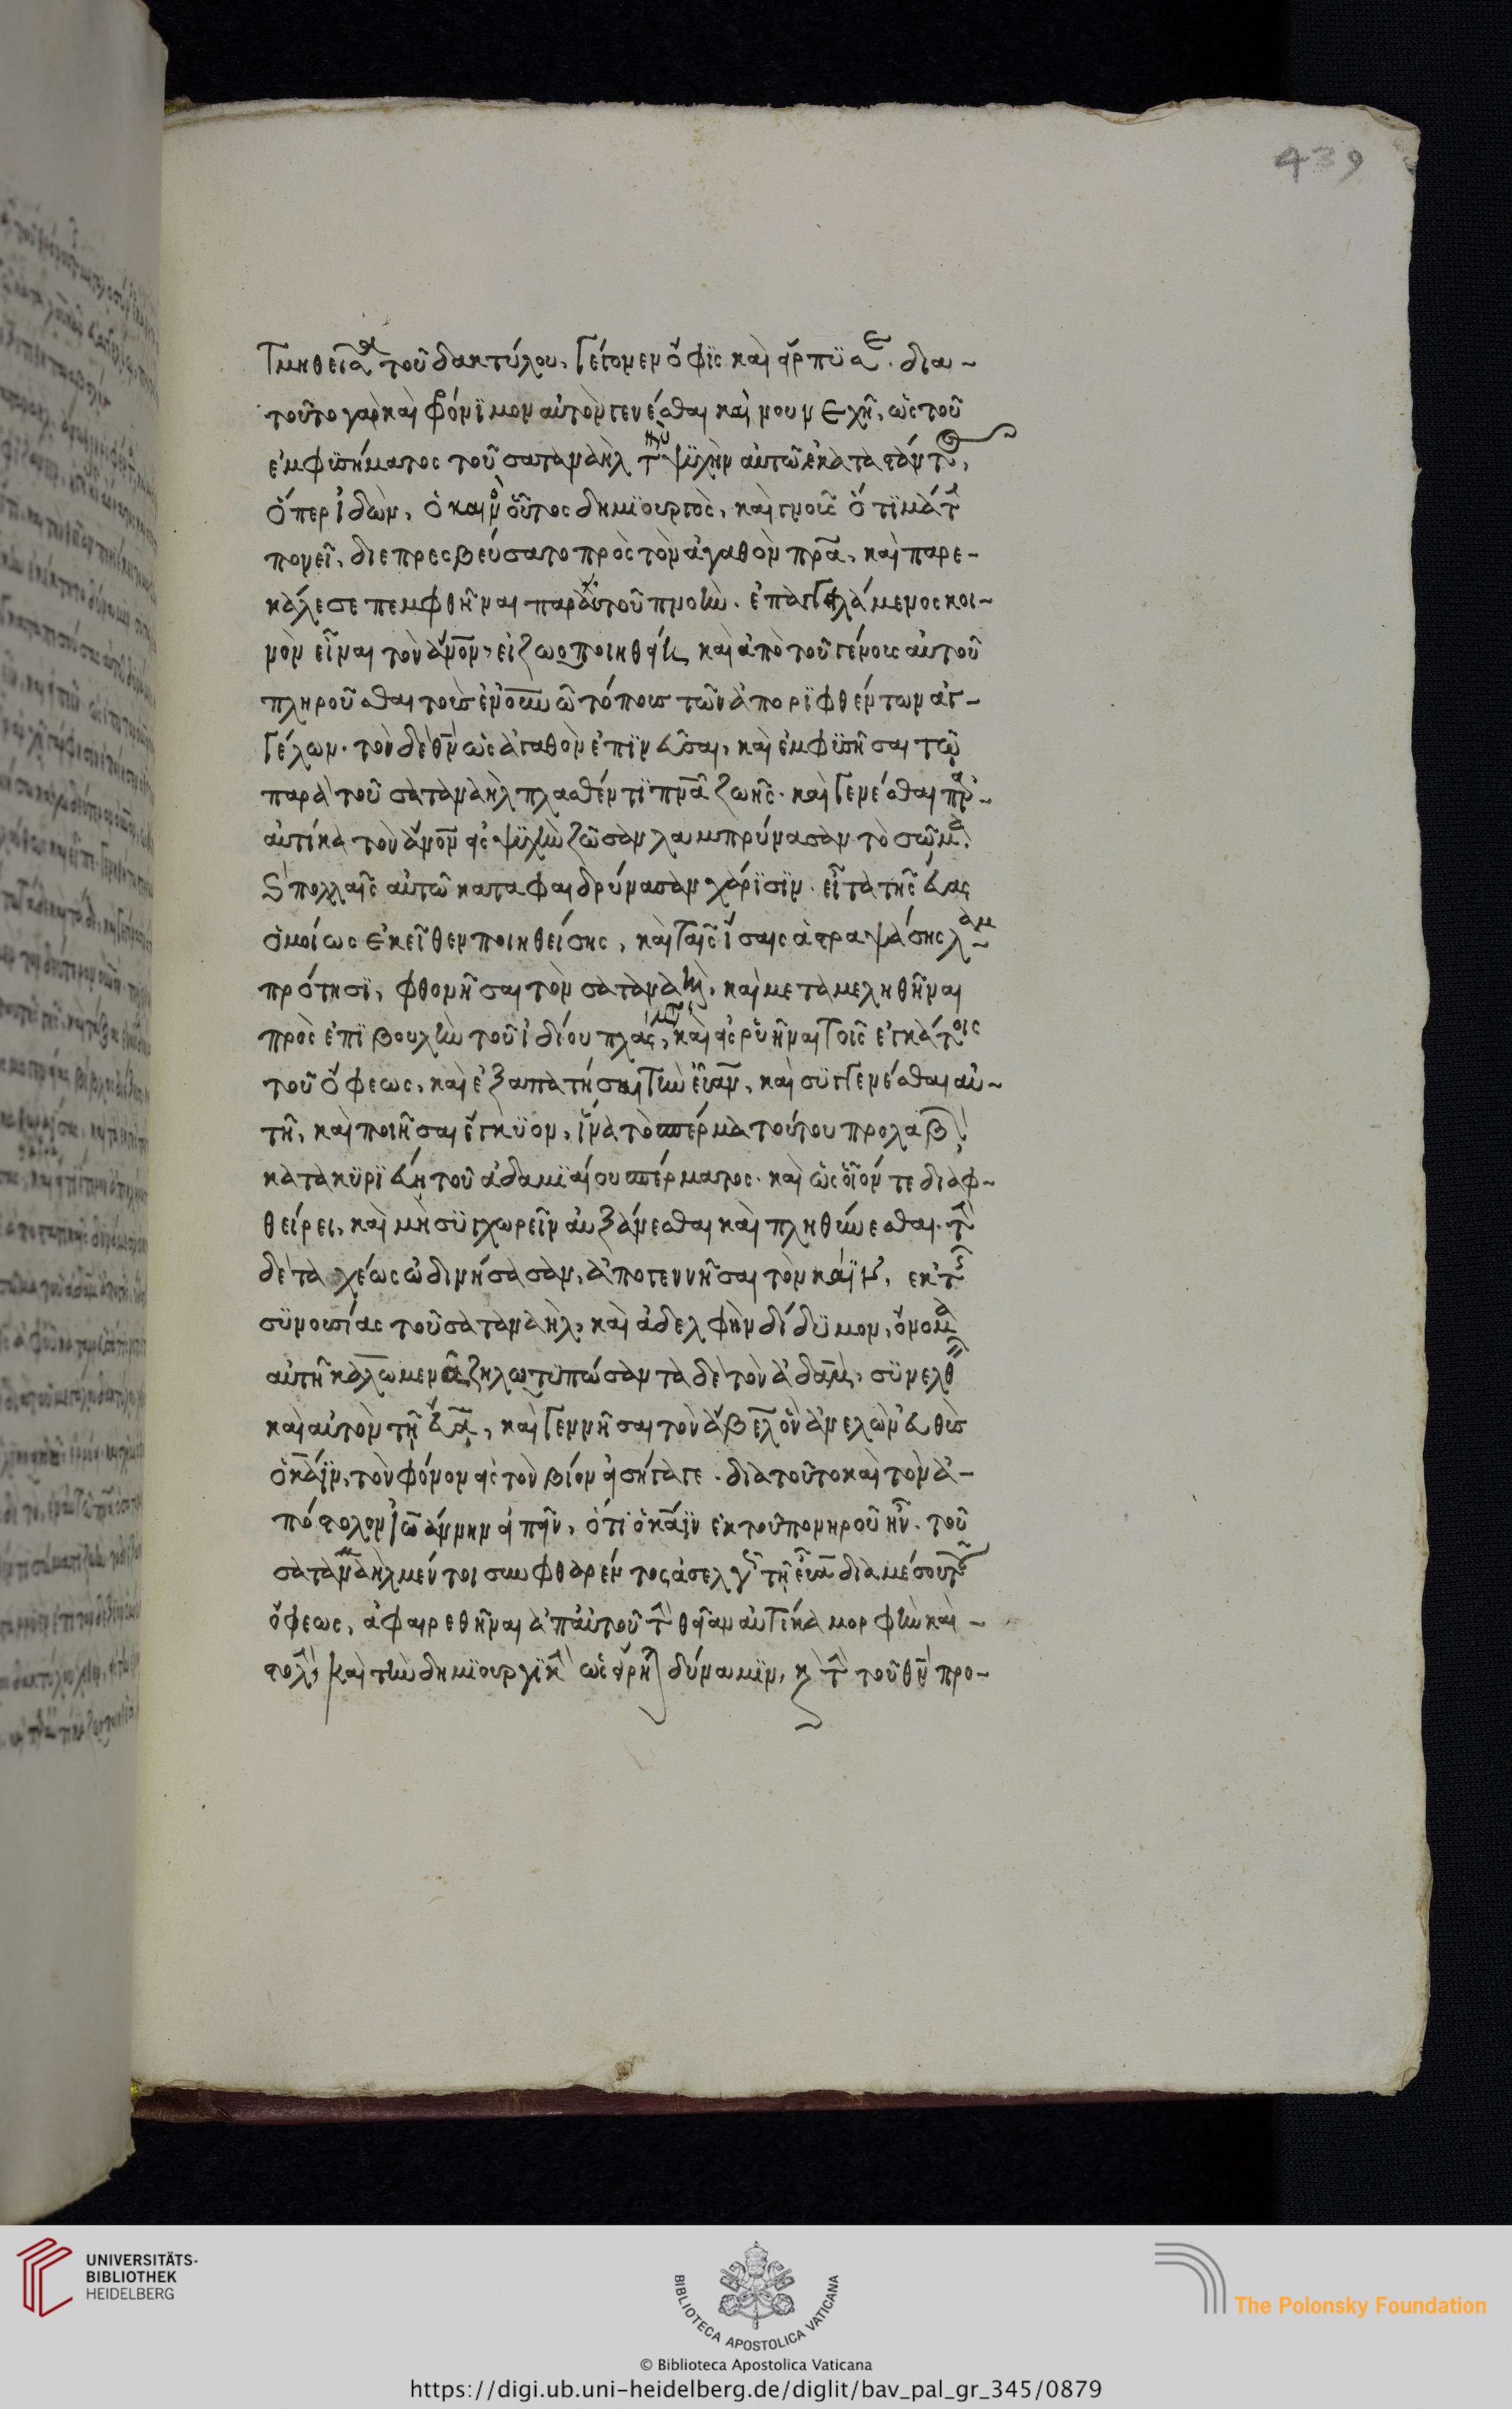 439
τμηθεῖσα τοῦ δακτύλου, γέγονεν ὄφϊς καὶ εἵρπϋσε. δια-
τοῦτο γὰρ καὶ φρόνϊμον αὐτὸν γενέσθαι καὶ νουνεχῆ, ὡς τοῦ
ἐμφϋσήματος τοῦ σαταναὴλ τὴν ψϋχὴν αὐτῶ
ὅπερ ἰδὼν, ὁ καινὸς οὗτος δημϊουργὸς, καὶ γνοὺς ὅτϊ μάτην
πονεῖ, διεπρεσβεύσατο πρὸς τὸν ἀγαθὸν πρα, καὶ παρε-
κάλεσε πεμφθῆναι παρ' αὐτοῦ πνοὴν. ἐπαγγειλάμενος κοι-
νὸν εἶναι τὸν ἄνον, εἰ ζωοποιηθείη, καὶ ἀπὸ τοῦ γένους αὐτοῦ
πληροῦσθαι τοὺς ἐν οὐνῶ τόπους τῶν ἀπορϊφθέντων ἀγ-
γέλων. τὸν δὲ θν ὡς ἀγαθὸν ἐπϊνεῦσαι, καὶ ἐμφϋσῆσαι τῶ
παρὰ τοῦ σαταναὴλ πλασθέντϊ πνα ζωῆς. καὶ γενέσθαι πρ-
αὐτίκα τὸν ἄνον εἰς ψϋχὴν ζῶσαν λαμπρύνασαν τὸ σῶμα.
καὶ πολλαῖς αὐτῶ καταφαιδρύνασαν χάρϊσϊν. εἶτα τῆς εὔας
ὁμοίως ἐκεῖθεν ποιηθείσης, καὶ ταῖς ἴσαις ἀστραψάσης λαμ-
πρότησϊ, φθονῆσαι τὸν σαταναὴλ, καὶ μεταμεληθῆναι
πρὸς ἐπϊβουλὴν τοῦ ἰδίου πλάσματος, καὶ εἰσρϋῆναι τοῖς ἐγκάτοις
τοῦ ὄφεως, καὶ ἐξαπατῆσαι τὴν εὔαν, καὶ σϋγγενέσθαι αὐ-
τῆ, καὶ ποιῆσαι ἔγκϋον, ἵνα τὸ σπέρμα τούτου προλαβὸν
κατακϋρϊεύη τοῦ ἀδαμϊαίου σπέρματος. καὶ ὡς οἷόν τε διαφ-
θείρει, καὶ μὴ σϋγχωρεῖν αὐξάνεσθαι καὶ πληθύνεσθαι. τὴν
δὲ ταχέως ὠδινήσασαν, ἀποτεννῆσαι τὸν κάϊν, ἐκ τῆς
σϋνουσίας τοῦ σαταναὴλ, καὶ ἀδελφὴν δίδϋμον, ὄνομα
αὐτῆ καλωμενα ζηλωτϋπώσαντα δὲ τὸν ἀδαμ, σϋνελθ
καὶ αὐτὸν τῆ εὔα, καὶ γεννῆσαι τὸν ἄβελ ὃν ἀνελὼν εὐθὺς
ὁ κάϊν, τὸν φόνον εἰς τὸν βίον εἰσήγαγε. διατοῦτο καὶ τὸν ἀ-
πόστολον ἰωάννην εἰπεῖν, ὅτϊ ὁ κάϊν ἐκ τοῦ πονηροῦ ἦν. τοῦ
σαταναὴλ μέντοι συμφθαρέντος ἀσελγ τῆ εὔα διὰ μέσου τοῦ
ὄφεως, ἀφαιρεθῆναι ἀπ' αὐτοῦ τὴν θείαν αὐτίκα μορφὴν καὶ -
στολ, καὶ τὴν δημϊουργϊκ ὡς εἴρητ δύναμϊν, κ τὴν τοῦ θυ προ-
UNIVERSITÄTS-
BIBLIOTHEK
HEIDELBERG
BIBLIOTECA APOSTOLICA VATICANA
The Polonsky Foundation
© Biblioteca Apostolica Vaticana
https://digi.ub.uni-heidelberg.de/diglit/bav_pal_gr_345/0879